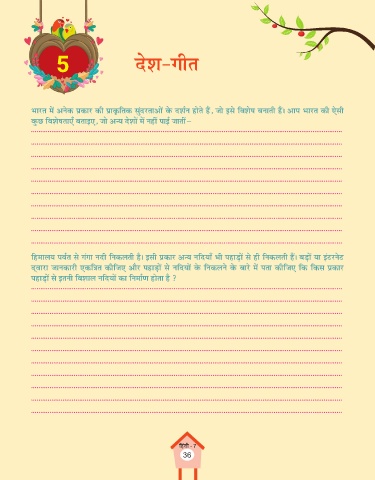 5
देश-गीत
भारत में अनेक प्रकार की प्राकृतिक सुंदरताओं के दर्शन होते हैं, जो इसे विशेष बनाती हैं। आप भारत की ऐसी
कुछ विशेषताएँ बताइए, जो अन्य देशों में नहीं पाई जातीं-
हिमालय पर्वत से गंगा नदी निकलती है। इसी प्रकार अन्य नदियाँ भी पहाड़ों से ही निकलती हैं। बड़ों या इंटरनेट
द्वारा जानकारी एकत्रित कीजिए और पहाड़ों से नदियों के निकलने के बारे में पता कीजिए कि किस प्रकार
पहाड़ों से इतनी विशाल नदियों का निर्माण होता है ?
हिंदी - 7
36